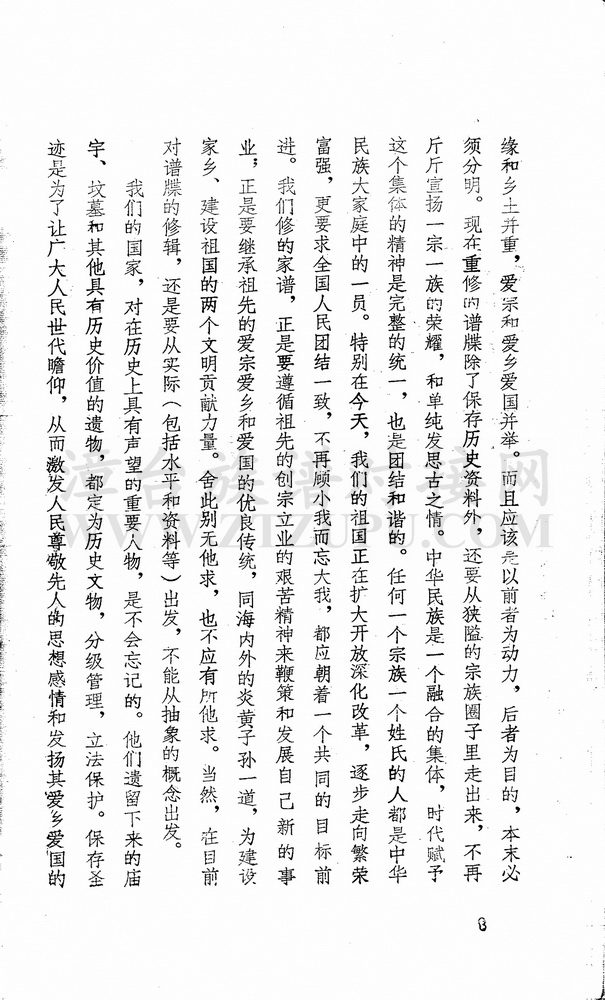 缘和乡土并重，爱宗和爱乡爱国并举。而且应该是以前者为动力，后者为目的，本末必
须分明。现在重修的谱牒除了保存历史资料外，还要从狭隘的宗族圈子里走出来，不再
斤斤宣扬一宗一族的荣耀，和单纯发思古之情。中华民族是一个融合的集体，时代赋予
这个集体的精神是完整的统一，也是团结和谐的。任何一个宗族一个姓氏的人都是中华
民族大家庭中的一员。特别在今天，我们的祖国正在扩大开放深化改革，逐步走向繁荣
富强，更要求全国人民团结一致，不再顾小我而忘大我，都应朝着一个共同的目标前
进。我们修的家谱，正是要遵循祖先的创宗立业的艰苦精神来鞭策和发展自己新的事
业，正是要继承祖先的爱宗爱乡和爱国的优良传统，同海内外的炎黄子孙一道，为建设
家乡、建设祖国的两个文明贡献力量。舍此别无他求，也不应有所他求。当然，在目前
对谱牒的修辑，还是要从实际（包括水平和资料等）出发，不能从抽象的概念出发。
我们的国家，对在历史上具有声望的重要人物，是不会忘记的。他们遗留下来的庙
宇、坟墓和其他具有历史价值的遗物，都定为历史文物，分级管理，立法保护。保存圣
迹是为了让广大人民世代瞻仰，从而激发人民尊敬先人的思想感情和发扬其爱乡爱国的
漳台族谱对接网
WWW.ZTZUPU.COM